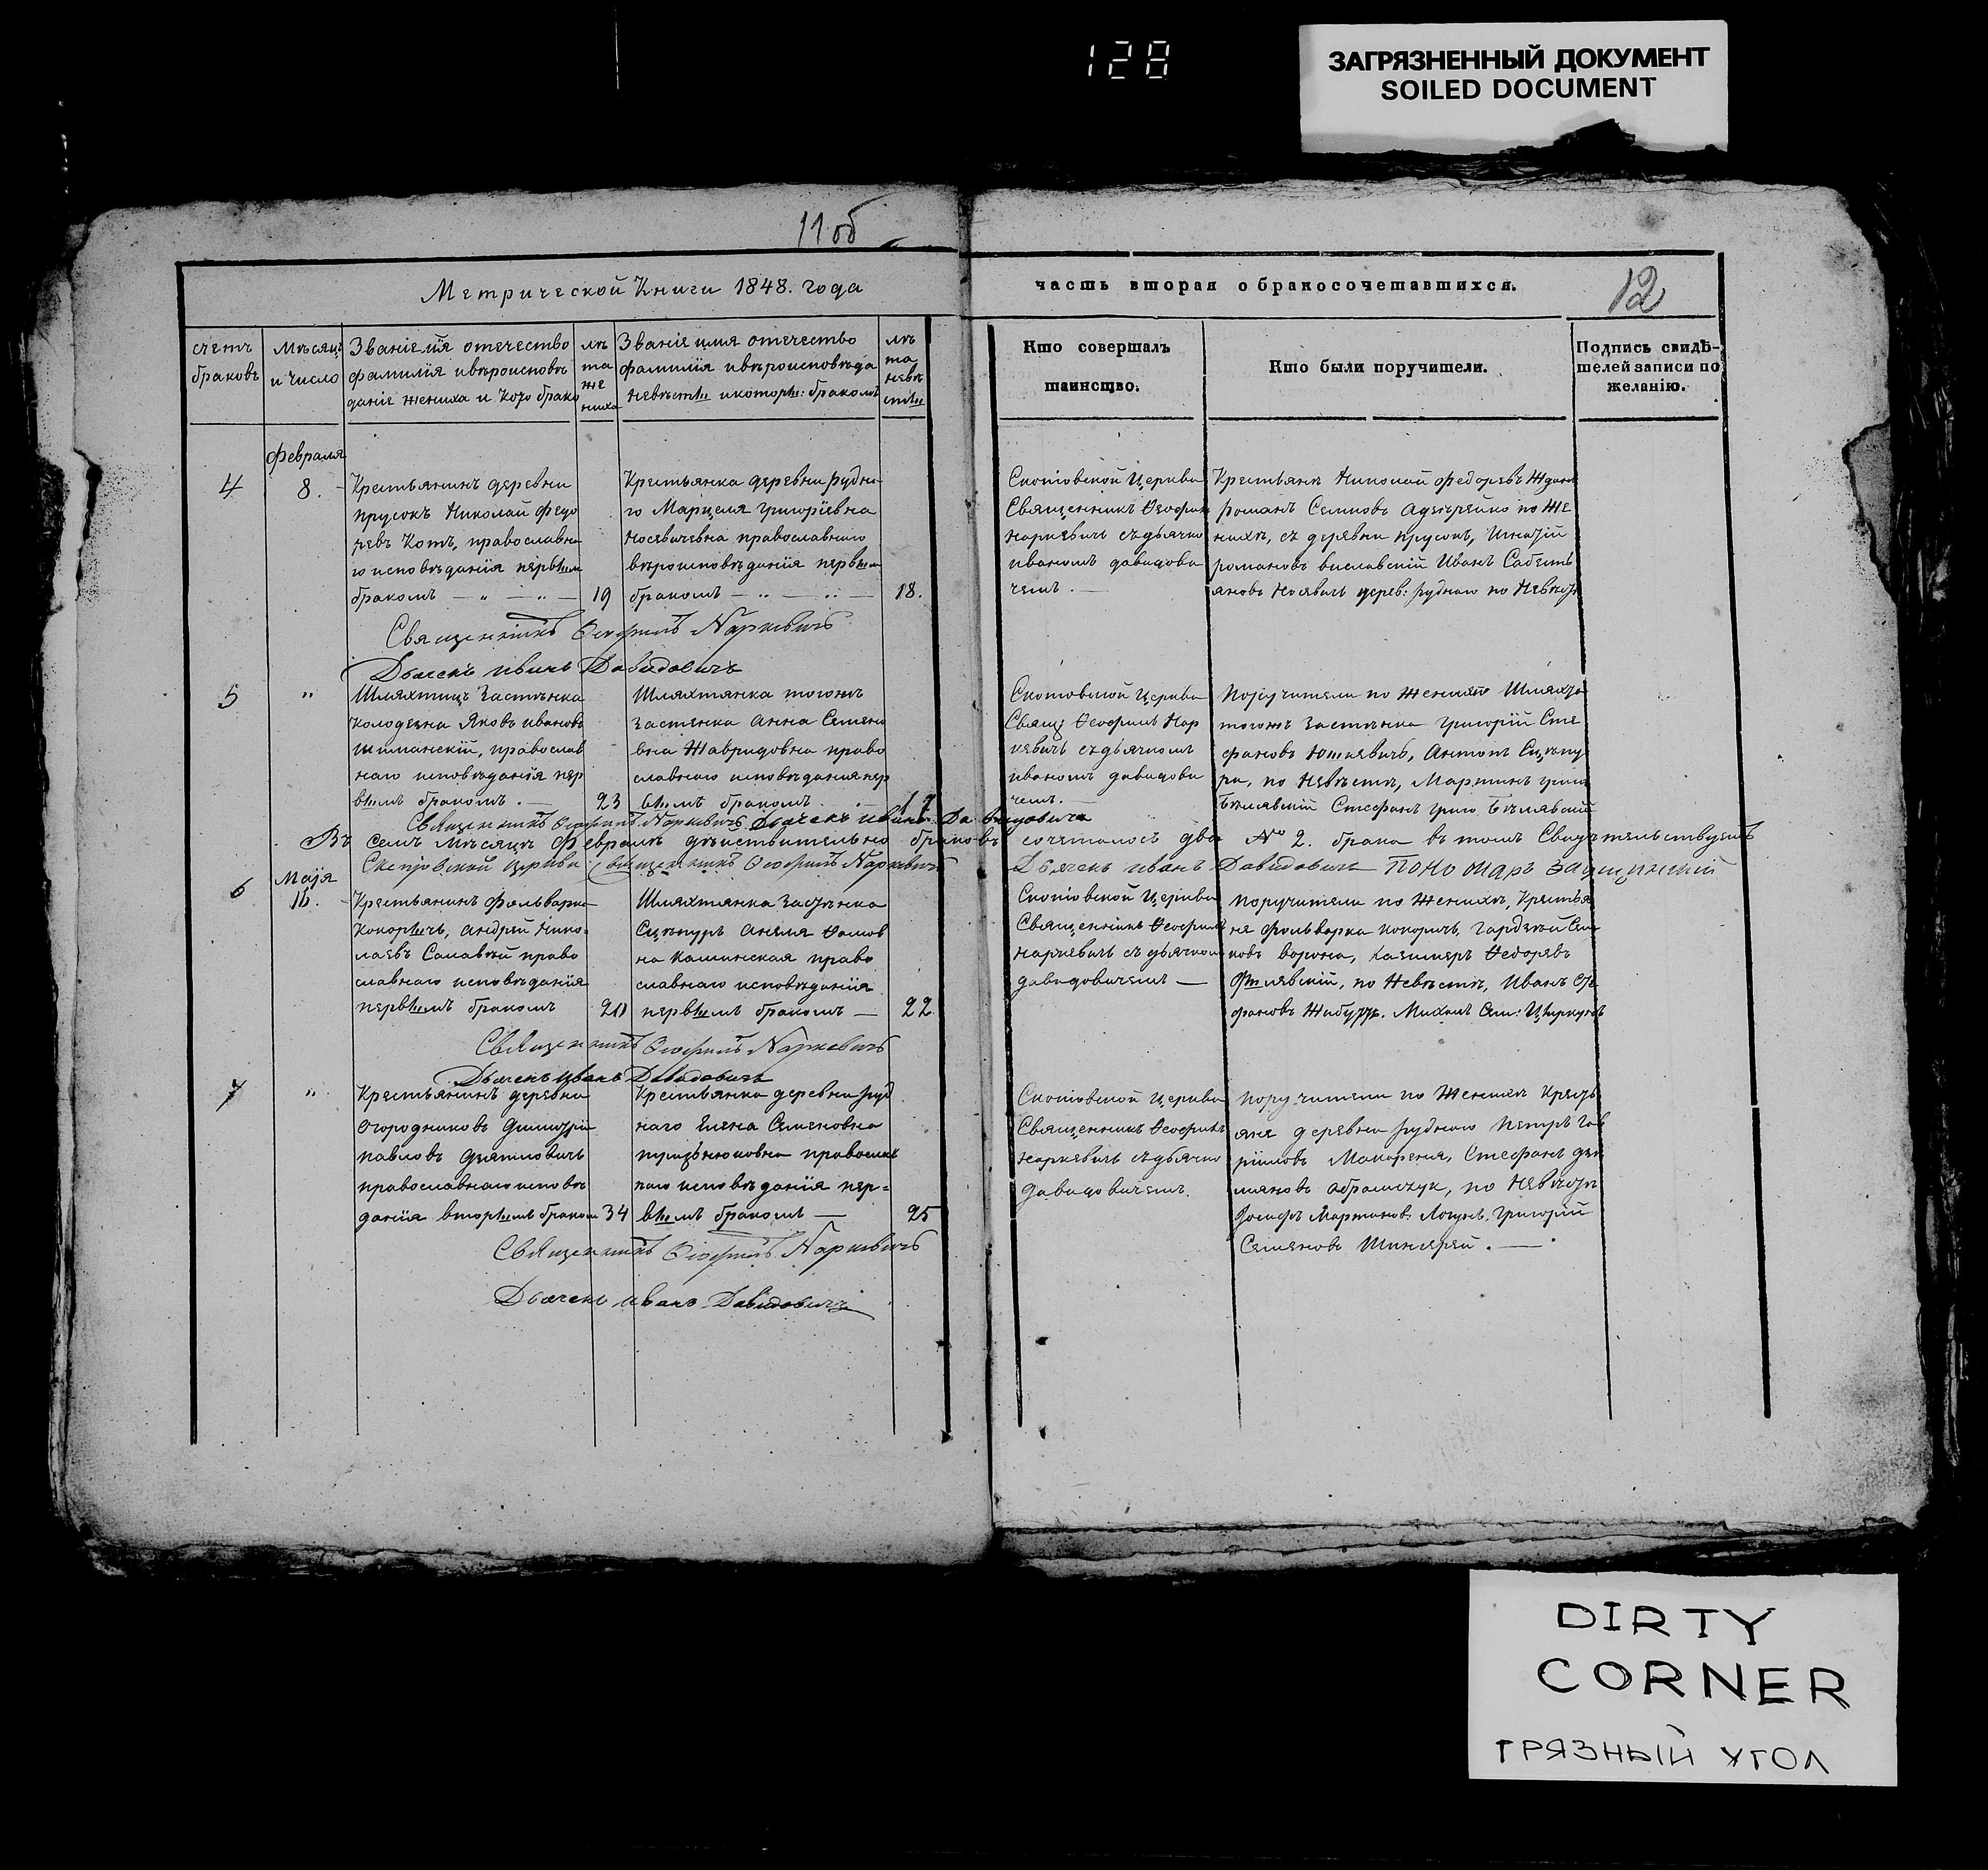 128
ЗАГРЯЗНЕННЫЙ ДОКУМЕНТ
SOILED DOCUMENT
11об
12
Метрической Книги 1848. года
часть вторая о бракосочетавшихся.
счетъ
браковъ
Мѣсяцъ
и число
Званіе имя отечество
фамилія и вѣроисповѣ
даніе жениха и кого брако
лѣ
та
же
ниха
Званіе имя отечество
фамилія и вѣроисповѣда
невѣсты и которы: бракомъ
лѣ
та
невѣ
сты
Кто совершалъ
таинство.
Кто были поручители.
Подпись свидѣ-
телей записи по
желанію.
Февраля
4
8.
Крестьянинъ деревни
Прусокъ Николай Федо
ревъ Котъ, православна
го исповѣданія первым
бракомъ
19
Крестьянка деревни Рудна
го Марцеля Григоріевна
Носевичевна православнаго
вѣроисповѣданія первым
бракомъ
18.
Скеповской Церкви
Священникъ Ѳеофил
Наркевичъ съ дьячко
Иваномъ Давидови
чемъ.
Крестьяне Николай Федоревъ
Романъ Семновъ по Же
нихѣ, съ деревни Прусокъ, Игнатій
Романовъ Иванъ
Носявичъ дерев: Руднаго по Невѣст
Священникъ Ѳеофилъ Наркевичъ
Дьячекъ Иванъ Давидовичъ
5
"
Шляхтицъ Застѣнка
Колодезна Яковъ Ивановъ
Шиманскій, православ
наго исповѣданія пер
вымъ бракомъ.
23
Шляхтянка тогожъ
Застенка Анна Семено
вна Жавридовна право
славнаго исповѣданія пер
вымъ бракомъ
17
Скеповской Церкви
Свящ Ѳеофилъ Нар
кевичъ съ дьячкомъ
Иваномъ Давидови
чемъ.
Поручители по Женихѣ Шляхта
тогожъ Застѣнка Григорій Сте
фановъ Юшкявичъ, Антонъ
по Невѣстѣ, Мартинъ
Бѣлявскій Стефанъ Григо Бѣлявскій
Священникъ Ѳеофилъ Наркевичъ Дьячекъ Иванъ Давидовичъ
Въ семъ мѣсяцѣ Февралѣ дѣйствительно браковъ сочеталось два № 2. брака въ томъ Свидѣтельствуемъ
Скеповской Церкви Священникъ Ѳеофилъ Наркевичъ Дьячекъ Иванъ Давидовичъ Пономарь
Маія
6
16.
Крестьянинъ Фольварка
Кокорычъ, Андрей Нико-
лаевъ Салавѣй право
славнаго исповѣданія
первымъ бракомъ
20
Шляхтянка Застѣнка
Сцепуръ Анеля Ѳомов
на Каминская право
славнаго исповѣданія
первымъ бракомъ
22
Скеповской Церкви
Священникъ Ѳеофилъ
Наркевичъ съ дьячкомъ
Давидовичемъ
Поручители по Женихѣ, Крестья
не Фольварка Кокоричъ, Гардѣй Сем
новъ Ворона, Казимеръ Ѳедоревъ
по Невѣстѣ, Иванъ Сте
фановъ Михаилъ Сем:
Священникъ Ѳеофилъ Наркевичъ
Дьячекъ Иванъ Давидовичъ
7
"
Крестьянинъ деревни
Огородниковъ Димитрій
Павловъ Дзятловичъ
православнаго исповѣ
данія вторымъ браком
34
Крестьянка деревни Руд
наго Елена Семеновна
православ
наго исповѣданія пер=
вымъ бракомъ
25
Скеповской Церкви
Священникъ Ѳеофилъ
Наркевичъ съ дьячко
Давидовичемъ.
Поручители по Женихѣ Кресть
яне деревни Руднаго Петръ Гав
риловъ Макареня, Стефанъ Дем
яновъ Абрамчук, по Невѣстѣ
Іосифъ Мартинов: Логунъ, Григорій
Семяновъ Шинкярей.
Священникъ Ѳеофилъ Наркевичъ
Дьячекъ Иванъ Давидовичъ
DIRTY
CORNER
ГРЯЗНЫЙ УГОЛ